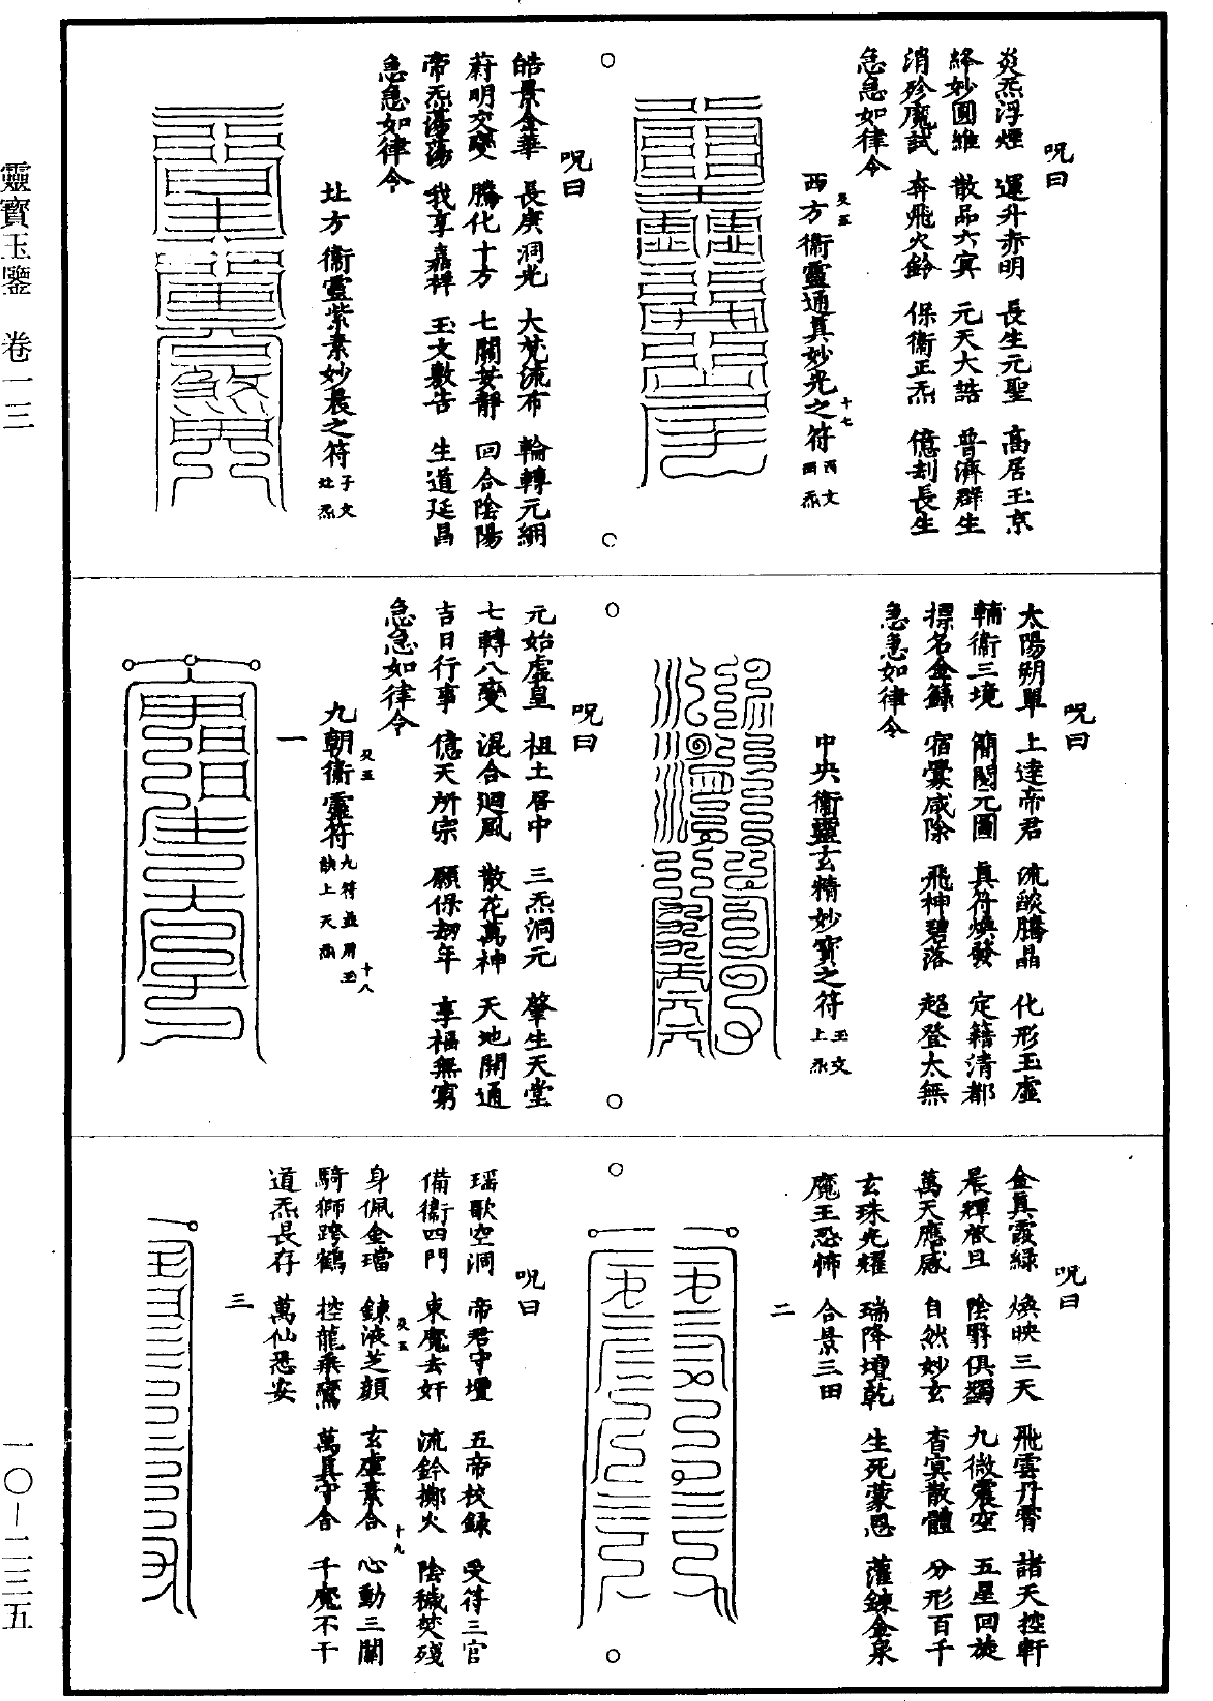 呪曰
炎炁浮煙　還升赤明　長生元聖　高居玉京
絳妙圓維　散品六冥　元天大誥　普濟群生
消殄魔試　奔飛火鈴　保衞正炁　億刦長生
急急如律令
西方衞靈通真妙光之符　酉文西炁
呪曰
皓景金華　長庚洞光　大梵流布　輪轉元綱
蔚明交變　騰化十方　七關安靜　回合陰陽
帝炁蕩蕩　我享嘉祥　玉文敷告　生道延昌
急急如律令
北方衞靈紫素妙晨之符　子文北炁
呪曰
太陽朔單　上達帝君　流燄騰晶　化形玉虛
輔衞三境　簡閱元圖　真符煥發　定籍清都
標名金籙　宿釁咸除　飛神碧落　超登太無
急急如律令
中央衞靈玄精妙寶之符　玉文上炁
呪曰
元始虛皇　祖土居中　三炁洞元　肇生天堂
七轉八變　混合迴風　散花萬神　天地開通
吉日行事　億天所宗　願保劫年　享福無窮
急急如律令
九朝衞靈符　九符並用玉訣上天炁
一
呪曰
金真霞綠　煥映三天　飛雲丹霄　諸天控軒
晨輝啟旦　陰翳俱蠲　九微震空　五星回旋
萬天應感　自然妙玄　杳冥散體　分形百千
玄珠光耀　瑞降壇乾　生死蒙恩　灌鍊金泉
魔王恐怖　合景三田
二
呪曰
瑶歌空洞　帝君守壇　五帝校錄　受符三官
備衞四門　東魔去奸　流鈴擲火　陰穢焚殘
身佩金璫　鍊液芝顏　玄虛素合　心動三關
騎獅跨鶴　控龍乘鸞　萬真守舍　千魔不干
道炁長存　萬仙悉安
三
靈寶玉鑒　卷一三
一〇—二三五